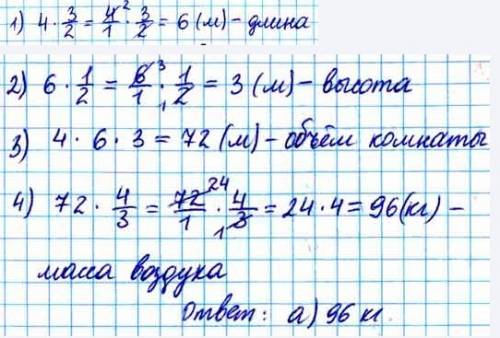 1) 4 · 3/2 = 4/1 ² · 3/2 = 6 (м) – длина
2) 6 · 1/2 = 6/1 ³ · 1/2 ₁ = 3 (м) – высота
3) 4 · 6 · 3 = 72 (м) – объём комнаты
4) 72 · 4/3 = 72/1 ²⁴ · 4/3 ₁ = 24 · 4 = 96 (кг) –
масса воздуха
Ответ: а) 96 кг.